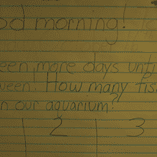 od morning!
een more days unti
ween! How many fis
n our aquarium?
2 3